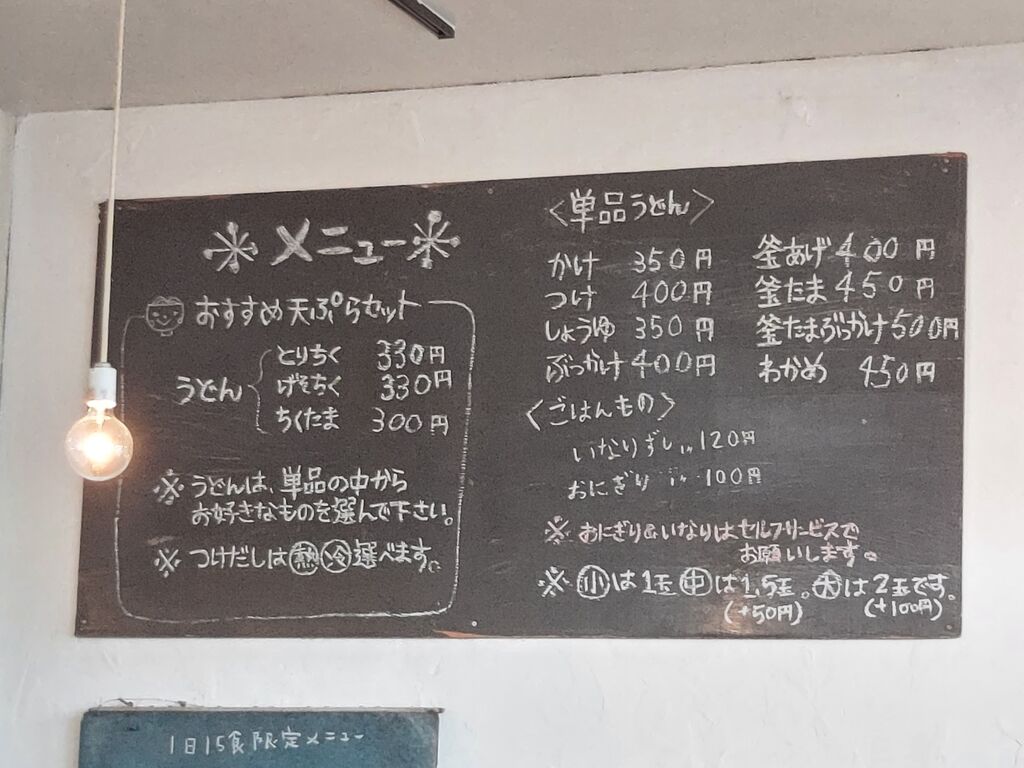 ※メニュー※
おすすめ天ぷらセット
うどん
とりちく 330円
げそちく 330円
ちくたま 300円
※うどんは、単品の中から
お好きなものを選んで下さい。
※つけだしは㊗冷選べます。
〈単品うどん〉
かけ 350円
つけ 400円
しょうゆ 350円
ぶっかけ 400円
釜あげ 400円
釜たま 450円
釜たまぶっかけ 500円
わかめ 450円
〈ごはんもの〉
いなりずし 120円
おにぎり 100円
※おにぎり&いなりはセルフサービスで
お願いします。
※小は1玉 中は1,5玉。大は2玉です。
(+50円) (+100円)
1日15食限定メニュー